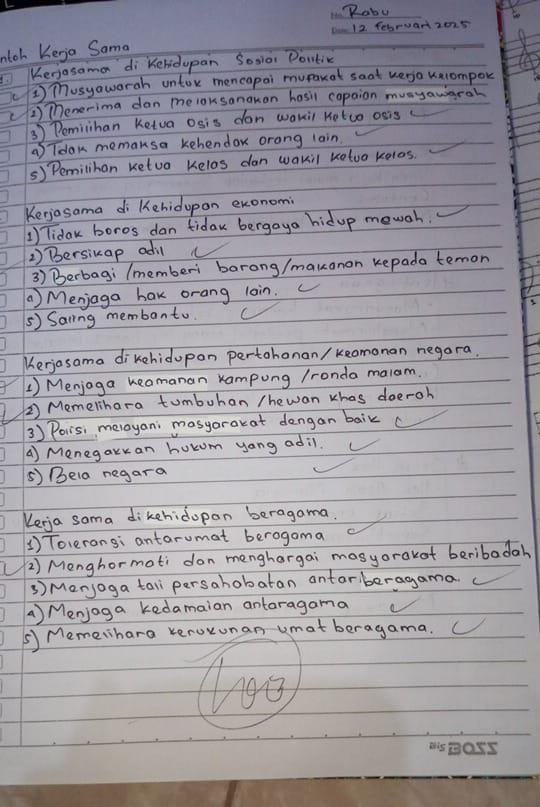 No: Rabu
Date: 12 februari 2025
ntoh Kerja Sama
Kerjasama di Kehidupan Sosial Politik
1) Musyawarah untuk mencapai mufakat saat kerja kelompok
2) Menerima dan melaksanakan hasil capaian musyawarah
3) Pemilihan Ketua Osis dan wakil ketua osis
4) Tdak memaksa kehendak orang lain.
5) Pemilihan ketua Kelas dan wakil ketua kelas.
Kerjasama di Kehidupan ekonomi
1) Tidak boros dan tidak bergaya hidup mewah.
2) Bersikap adil
3) Berbagi /memberi barang/makanan kepada teman
4) Menjaga hak orang lain.
5) Saling membantu.
Kerjasama dikehidupan pertahanan/keamanan negara.
1) Menjaga keamanan kampung /ronda malam.
2) Memelihara tumbuhan /hewan khas daerah
3) Polisi melayani masyarakat dengan baik
4) Menegakkan hukum yang adil.
5) Bela negara
Kerja sama dikehidupan beragama.
1) Tolerangsi antarumat beragama
2) Menghormati dan menghargai masyarakat beribadah
3) Menjaga tali persahabatan antar beragama.
4) Menjaga kedamaian antaragama
5) Memelihara kerukunan umat beragama.
100
BIG BOSS